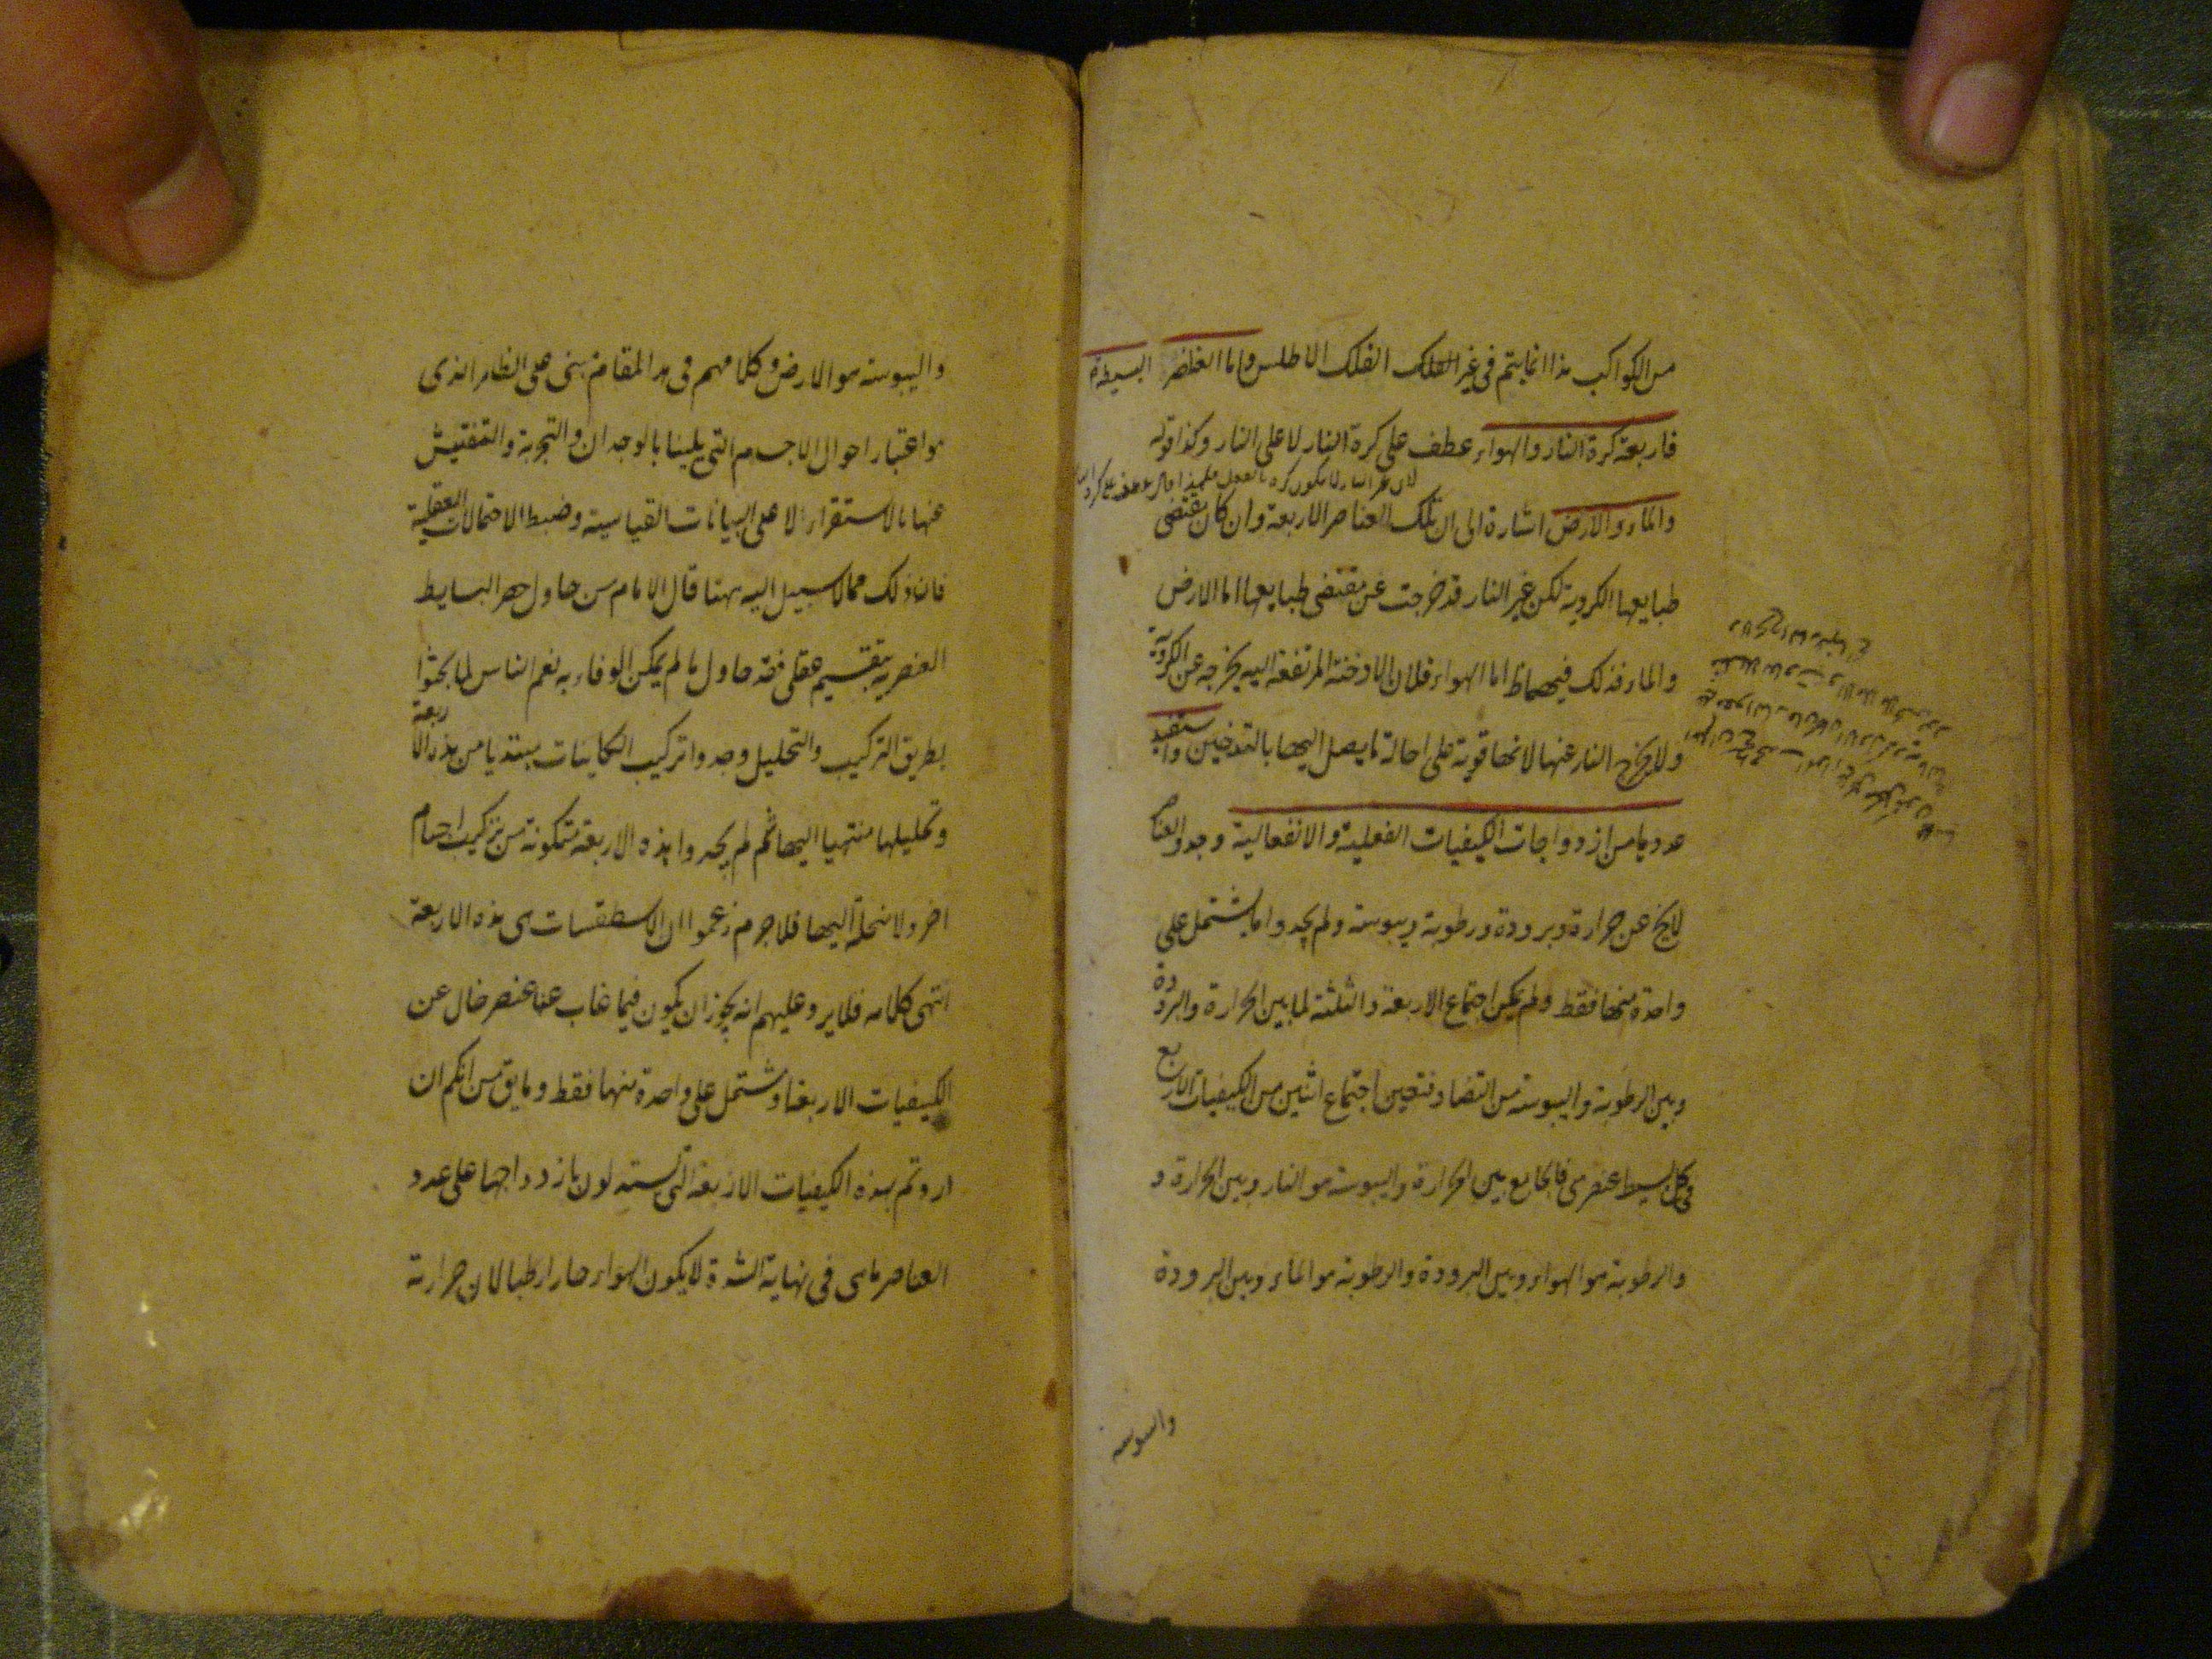 من الكواكب هذا انما يتم في غير الفلك الفلك الاطلس واما العناصر البسيطة
فاربعة كرة النار والهواء عطف على كرة النار لا على النار وكذا قوله
والماء والارض اشارة الى ان تلك العناصر الاربعة وان كان يقتضى
طبايعها الكروية لكن غير النار قد خرجت عن مقتضى طبايعها اما الارض
والماء فذلك فيهما ظ اما الهواء فلان الادخنة المرتفعة اليه يخرجه عن الكروية
ولا يخرج النار عنها لانها قوية على احالة ما يصل اليها بالتدخين واستفيد
عددها من ازدواجات الكيفيات الفعلية والانفعالية وجدوا العناصر
لا يخ عن حرارة وبرودة ورطوبة ويبوسة ولم يجدوا ما يشتمل على
واحدة منها فقط ولم يكن اجتماع الاربعة والثلثة لما بين الحرارة والبرودة
وبين الرطوبة واليبوسة من التضاد فتعين اجتماع اثنين من الكيفيات الاربع
في كل بسيط عنصرى فالجامع بين الحرارة واليبوسة هو النار وبين الحرارة و
والرطوبة هو الهواء وبين البرودة والرطوبة هو الماء وبين البرودة
واليبوسة
واليبوسة هو الارض وكلامهم في هذا المقام مبنى على الظاهر الذى
هو اعتبار احوال الاجسام التى يلينا بالوجدان والتجربة والتفتيش
عنها بالاستقراء لا على البيانات القياسية وضبط الاحتمالات العقلية
فان ذلك مما لا سبيل اليه ههنا قال الامام من حاول حصر البسايط
العنصرية بتقسيم عقلى فقد حاول ما لم يمكن الوفاء به نعم الناس لما بحثوا
بطريق التركيب والتحليل وجدوا تركيب الكاينات مبتديا من هذه الاربعة
وتحليلها منتهيا اليها ثم لم يجدوا هذه الاربعة متكونة من تركيب اجسام
اخر ولا منحلة اليها فلا جرم زعموا ان الاسطقسات هى هذه الاربعة
انتهى كلامه فلا يرد عليهم انه يجوز ان يكون فيما غاب عنا عنصر خال عن
الكيفيات الاربعة او مشتمل على واحدة منها فقط وما يق من انكم ان
اردتم بهذه الكيفيات الاربعة التى تستدلون بازدواجها على عدد
العناصر ما هى في نهاية الشدة لا يكون الهواء حارا رطبا لان حرارته